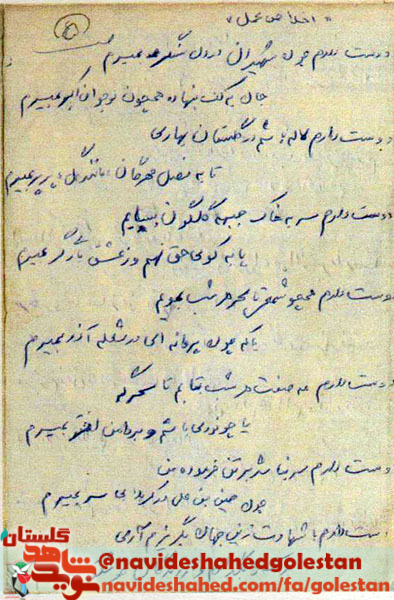 « اخلاص عمل »
۵
دوست دارم چون شهیدان در دل سنگر بمیرم
جان به کف بنهاده همچون نوجوان اکبر بمیرم
دوست دارم لاله باشم در گلستان بهاری
تا به فصل مهرگان مانند گل پرپر بمیرم
دوست دارم سر به خاک جبهه گلگون بسایم
پا به کوی حق نهم وز عشق بمیرم
دوست دارم همچو شمعی تا سحر هر شب بمویم
یا که چون پروانه ای در شعله آذر بمیرم
دوست دارم هر شب بتابم تا سحرگه
یا چو نوری باشم و بمیرم
دوست دارم سر نباشد بر تن فرسوده من
چون حسین بن علی در کربلا بی سر بمیرم
دوست دارم با شهادت زین جهان آری
گلستان
نوید شاهد
@navideshahedgolestan
navideshahed.com/fa/golestan